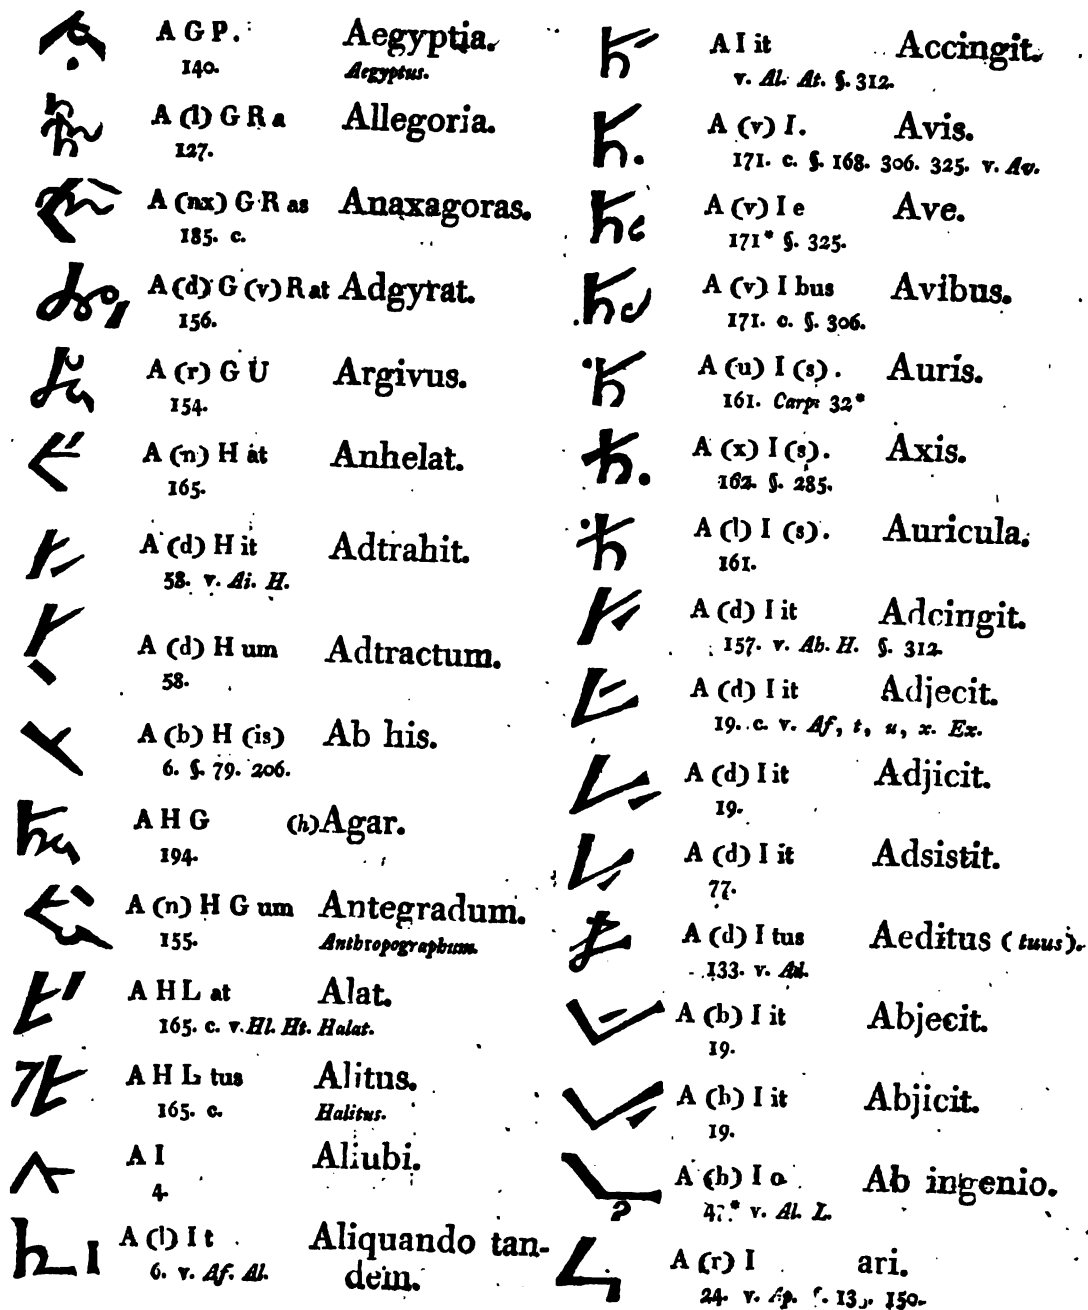 A G P. Aegyptia.
140. Aegyptus.
A (l) G R a Allegoria.
127.
A (nx) G R as Anaxagoras.
185. c.
A (d) G (v) R at Adgyrat.
156.
A (r) G U Argivus.
154.
A (n) H at Anhelat.
165.
A (d) H it Adtrahit.
58. v. Ai. H.
A (d) H um Adtractum.
58.
A (b) H (is) Ab his.
6. §. 79. 206.
A H G (h)Agar.
194.
A (n) H G um Antegradum.
155. Anthropographum.
A H L at Alat.
165. c. v. Hl. Ht. Halat.
A H L tus Alitus.
165. c. Halitus.
A I Aliubi.
4.
A (l) I t Aliquando tan-
6. v. Af. Al. dem.
A I it Accingit.
v. Al. At. §. 312.
A (v) I. Avis.
171. c. §. 168. 306. 325. v. Av.
A (v) I e Ave.
171* §. 325.
A (v) I bus Avibus.
171. c. §. 306.
A (u) I (s). Auris.
161. Carp. 32*
A (x) I (s). Axis.
162. §. 285.
A (l) I (s). Auricula.
161.
A (d) I it Adcingit.
157. v. Ab. H. §. 312.
A (d) I it Adjecit.
19. c. v. Af, t, u, x. Ex.
A (d) I it Adjicit.
19.
A (d) I it Adsistit.
77.
A (d) I tus Aeditus (tuus).
133. v. Ad.
A (b) I it Abjecit.
19.
A (b) I it Abjicit.
19.
A (b) I o Ab ingenio.
47.* v. Al. L.
A (r) I ari.
24. v. Ap. 150.